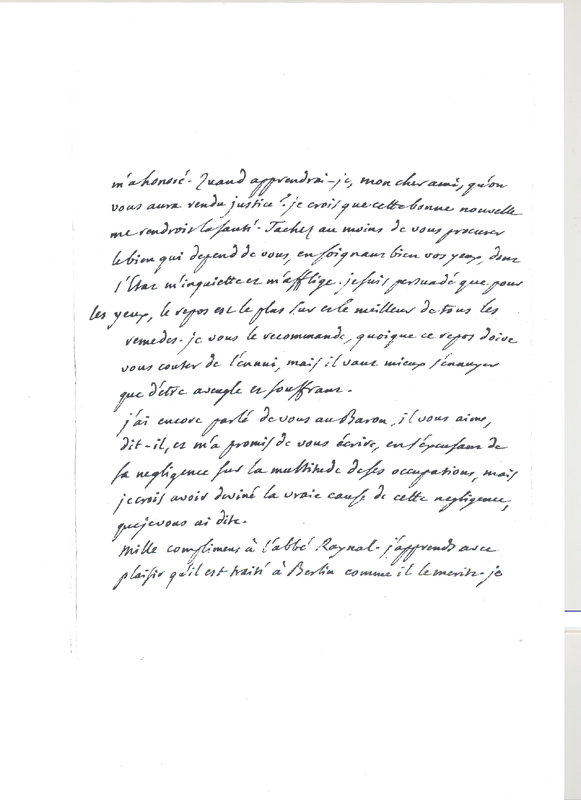 m'a honoré. Quand apprendrai-je, mon cher ami, qu'on
vous aura rendu justice? je crois que cette bonne nouvelle
me rendroit la santé. Tachez au moins de vous procurer
le bien qui depend de vous, en soignant bien vos yeux, dont
l'état m'inquiette et m'afflige. je suis persuadé que pour
les yeux, le repos est le plus sur et le meilleur de tous les
remedes. je vous le recommande, quoique ce repos doive
vous couter de l'ennui, mais il vaut mieux s'ennuyer
que d'être aveugle et souffrant.
j'ai encore parlé de vous au Baron, il vous aime,
dit-il, et m'a promis de vous écrire, en s'excusant de
sa negligence sur la multitude de ses occupations, mais
je crois avoir deviné la vraie cause de cette negligence,
que je vous ai dite.
Mille complimens à l'abbé Raynal. j'apprends avec
plaisir qu'il est traité à Berlin comme il le merite. je